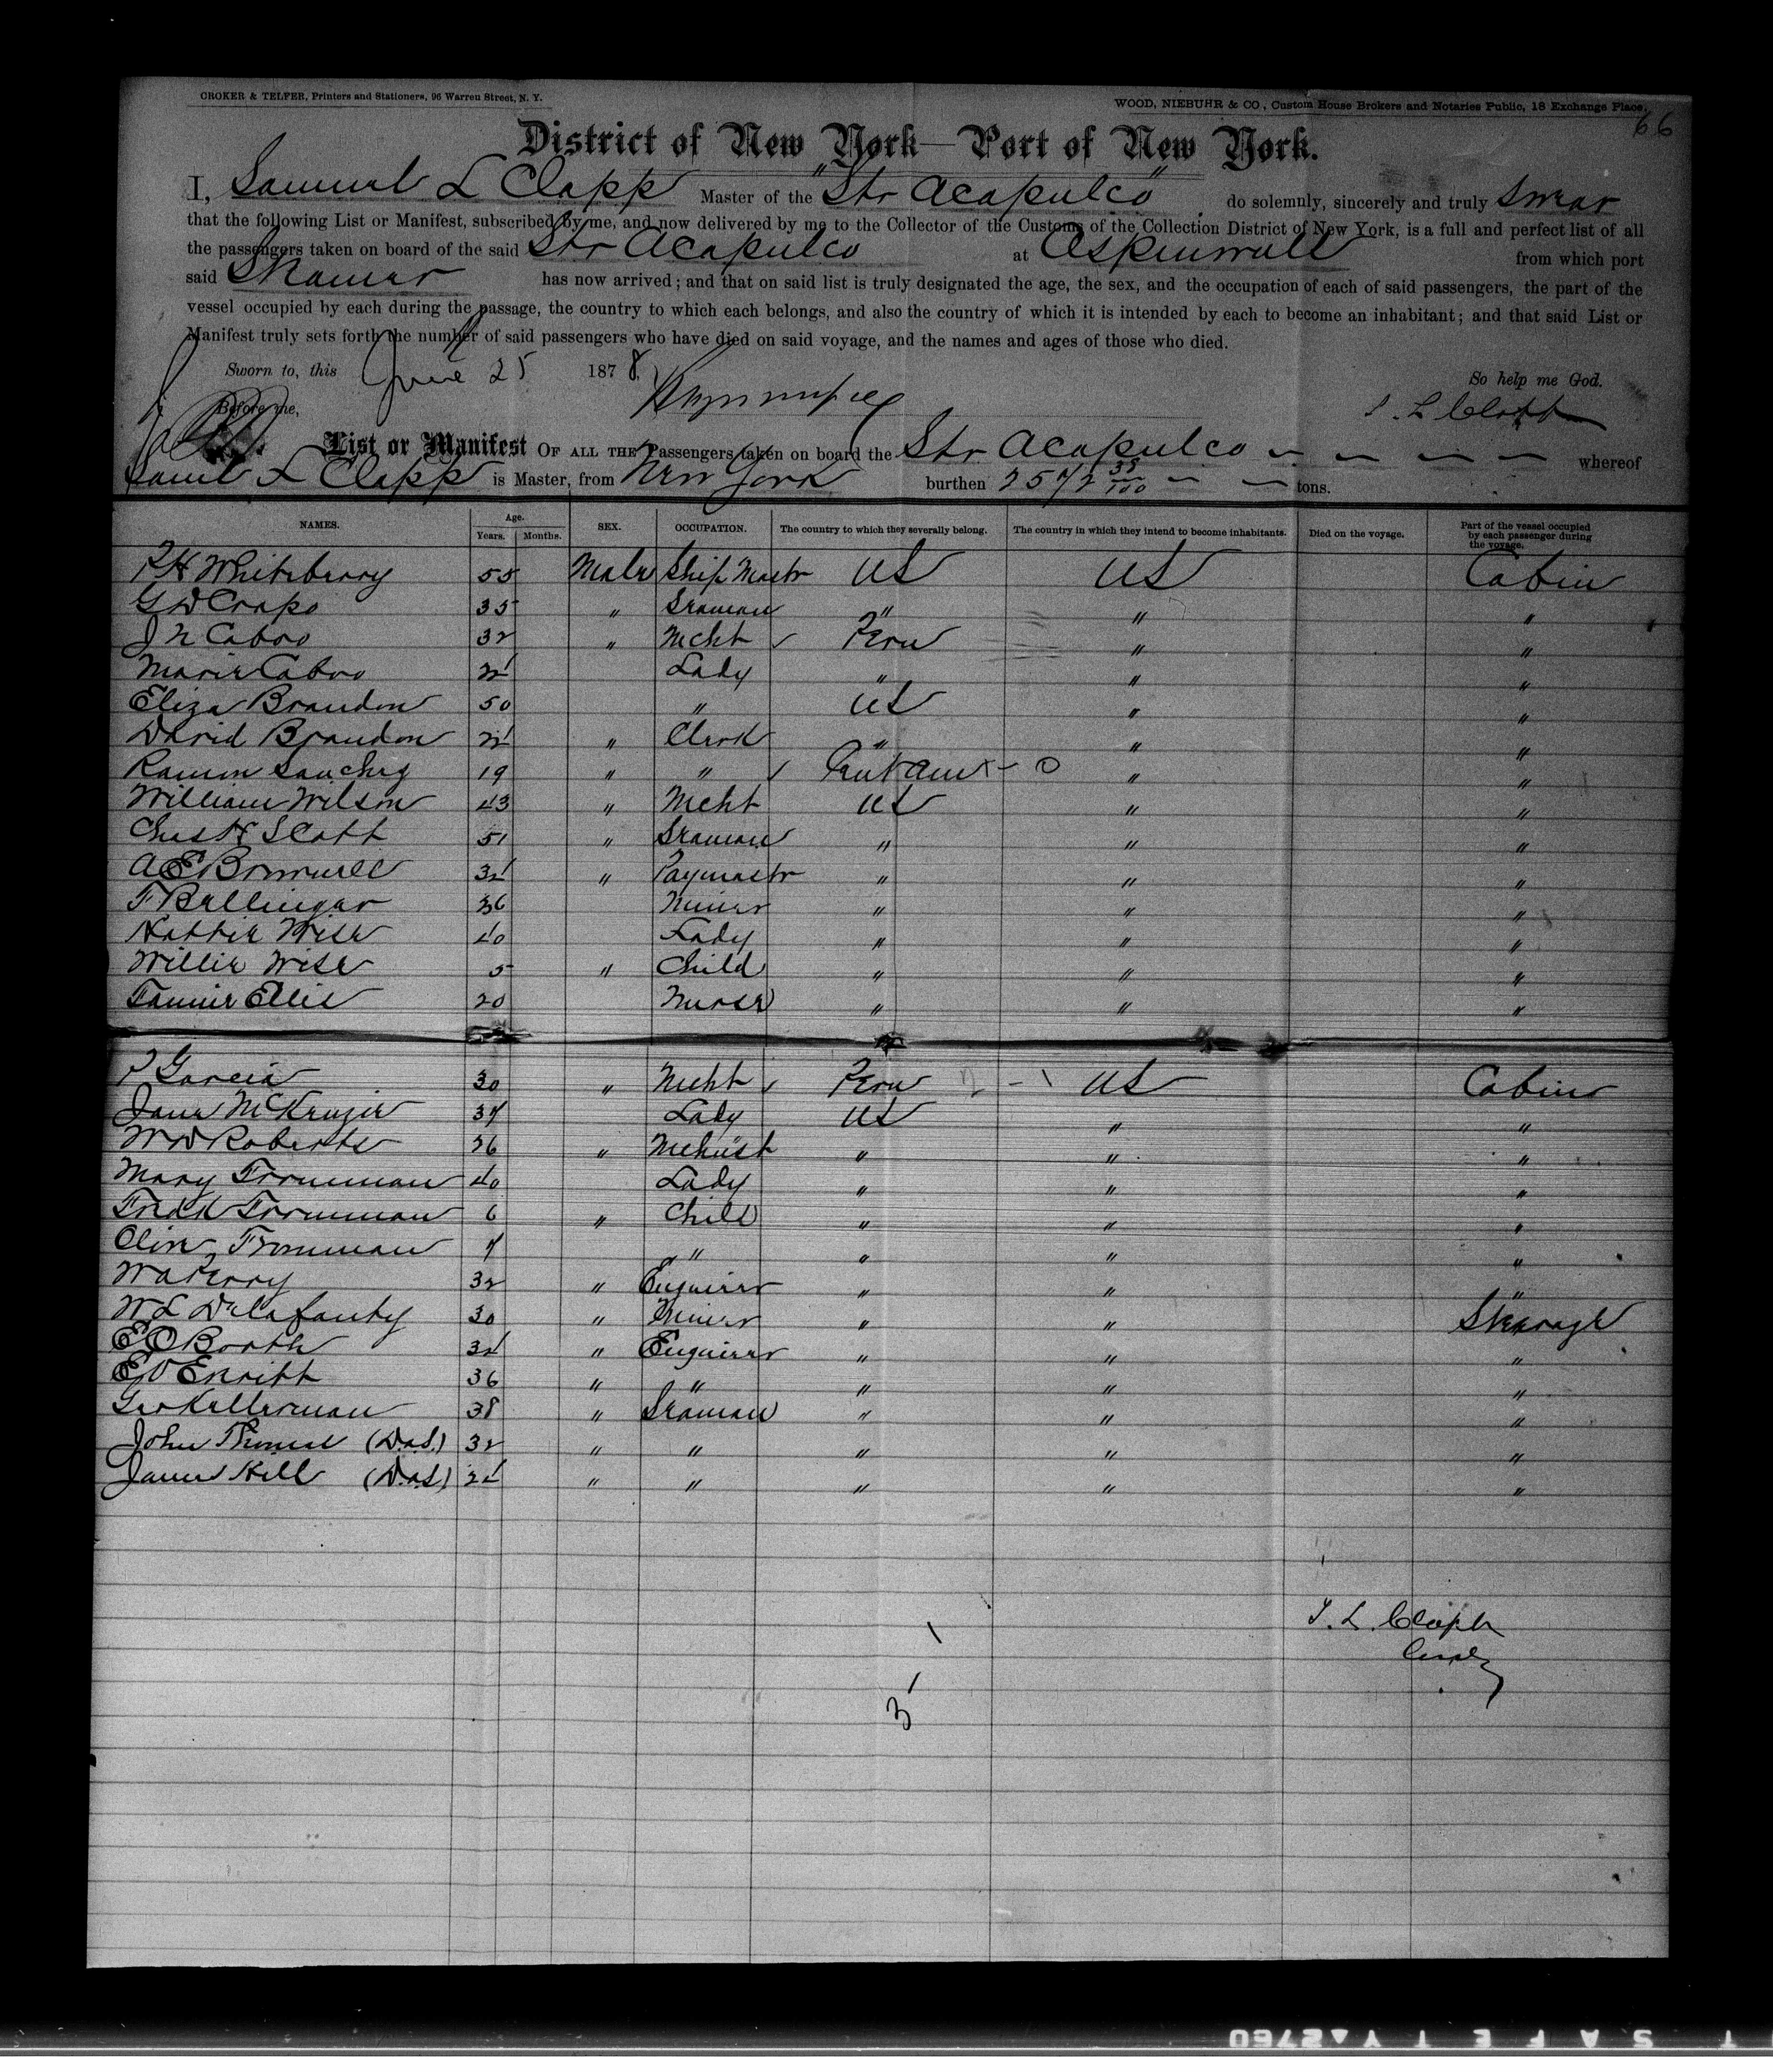 CROKER & TELFER, Printers and Stationers, 96 Warren Street, N. Y. WOOD, NIEBUHR & CO., Custom House Brokers and Notaries Public, 18 Exchange Place.
66
District of New York—Port of New York.
I, Samuel L Clapp Master of the "Str Acapulco" do solemnly, sincerely and truly swear
that the following List or Manifest, subscribed by me, and now delivered by me to the Collector of the Customs of the Collection District of New York, is a full and perfect list of all
the passengers taken on board of the said Str Acapulco at Aspinwall from which port
said Steamer has now arrived; and that on said list is truly designated the age, the sex, and the occupation of each of said passengers, the part of the
vessel occupied by each during the passage, the country to which each belongs, and also the country of which it is intended by each to become an inhabitant; and that said List or
Manifest truly sets forth the number of said passengers who have died on said voyage, and the names and ages of those who died.
Sworn to, this June 25 1878, So help me God.
Before me, S. L. Clapp
List or Manifest OF ALL THE Passengers taken on board the Str Acapulco whereof
Saml L Clapp is Master, from New York burthen 2572 38/100 tons.
NAMES. Age. Years. Months. SEX. OCCUPATION. The country to which they severally belong. The country in which they intend to become inhabitants. Died on the voyage. Part of the vessel occupied by each passenger during the voyage.
P H Whiteberry 55 Male Ship Mastr US US Cabin
G W Crapo 35 " Seaman " " "
J N Cabro 32 " Mcht Peru " "
Marie Cabro 24 Lady " " "
Eliza Brandon 50 " US " "
David Brandon 24 " Clerk " " "
Ramon Sanchez 19 " " Cent Am " "
William Wilson 43 " Mcht US " "
Chas H Scott 51 " Seaman " " "
A E Bronwell 34 " Paymastr " " "
F Ballinger 36 Miner " " "
Hattie Wise 40 Lady " " "
Willie Wise 5 " Child " " "
Fannie Ellis 20 Nurse " " "
P Garcia 30 " Mcht Peru US Cabin
Jane McKenzie 37 Lady US " "
W W Roberts 26 " Mchnist " " "
Mary Fronman 40 Lady " " "
Fredk Fronman 6 " Child " " "
Olive Fronman 7 " " " "
W A Perry 32 " Engineer " " "
W L Delafanty 30 " Miner " " Steerage
E O Booth 34 " Engineer " " "
E V Everitt 36 " " " " "
Geo Kellerman 38 " Seaman " " "
John Thomas (D.a.S.) 32 " " " " "
James Hill (D.a.S.) 24 " " " " "
S. L. Clapp
3